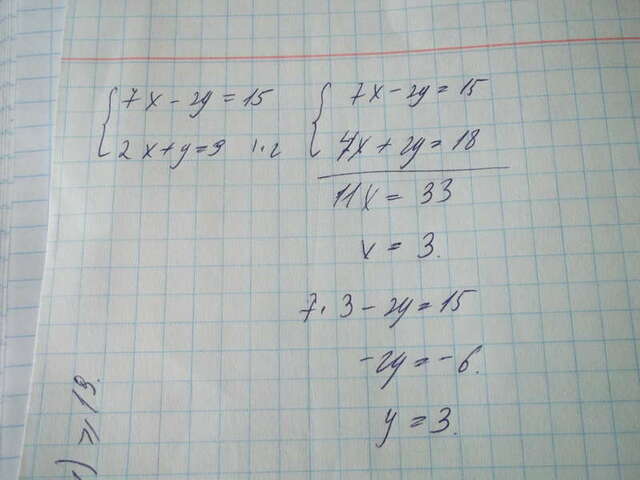 7x - 2y = 15
2x + y = 9 | · 2
7x - 2y = 15
4x + 2y = 18
11x = 33
x = 3.
7 · 3 - 2y = 15
-2y = -6.
y = 3.
) ≥ 13.